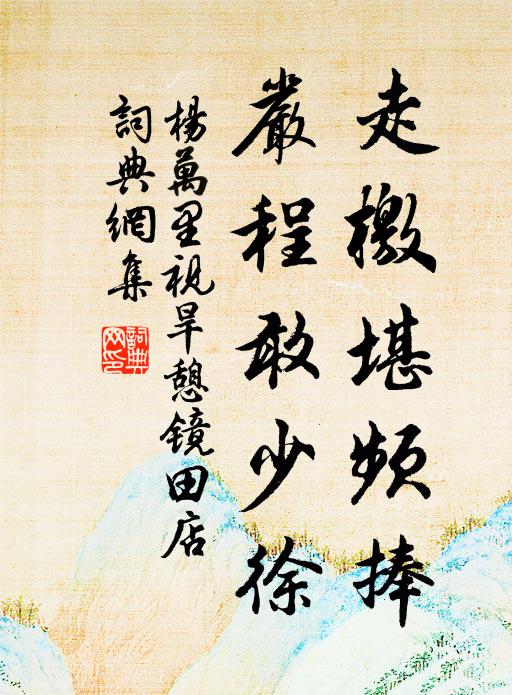 走檄堪頻捧
嚴程敢少徐
楊萬里視旱憩镜田店
詞典網集
詞典网印